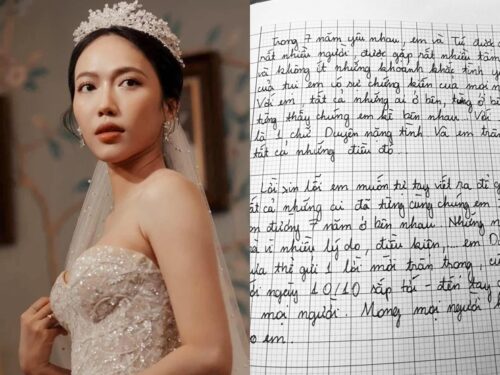 Trong 7 năm yêu nhau, em và Tú được
rất nhiều người, được gặp rất nhiều
và không ít những khoảnh khắc tình
của tụi em có sự chứng kiến của mọi
Với em tất cả những ai ở bên, từng ở
từng thấy chúng em kề bên nhau. Với
là 1 chữ Duyên nặng tình. Và em trân
tất cả những điều đó.
Lời xin lỗi em muốn từ tay viết ra để
tất cả những ai đã từng cùng chúng em
đường 7 năm ở bên nhau. Những
vì nhiều lý do, điều kiện,... em
thể gửi 1 lời mời trân trọng,
ngày 10/10 sắp tới - đến tay
mọi người. Mong mọi người
em.